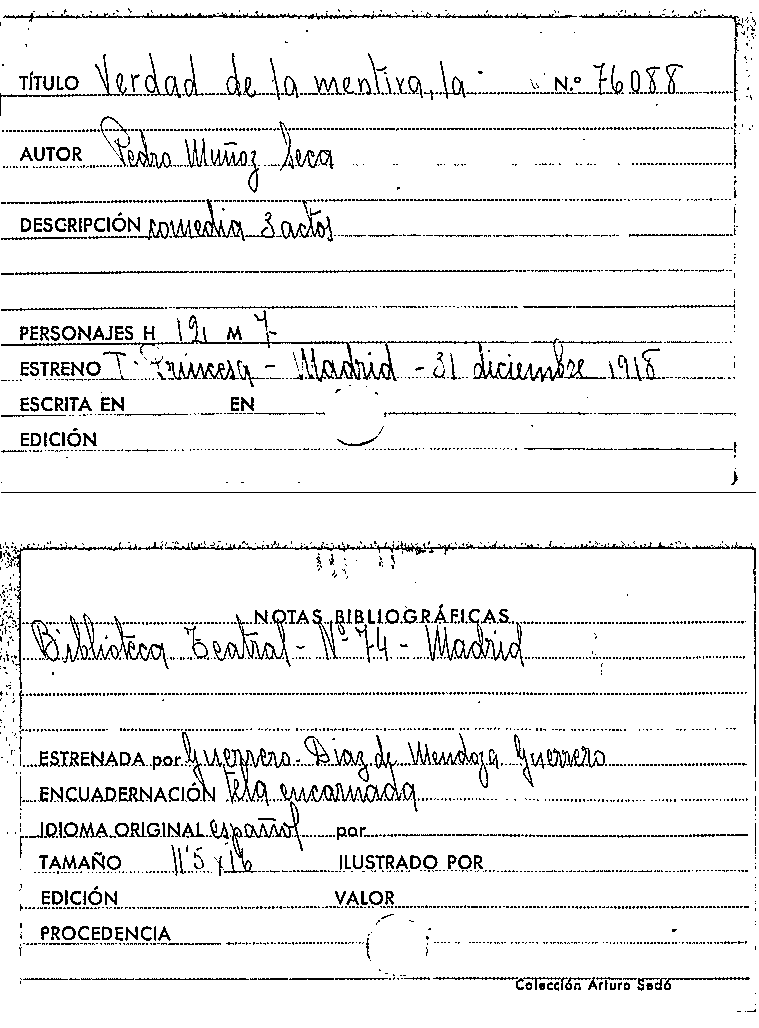 TÍTULO Verdad de la mentira, la N.º 76088
AUTOR Pedro Muñoz Seca
DESCRIPCIÓN comedia 3 actos
PERSONAJES H 12 M 7
ESTRENO T. Princesa - Madrid - 31 diciembre 1918
ESCRITA EN EN
EDICIÓN
NOTAS BIBLIOGRÁFICAS
Biblioteca Teatral - Nº 74 - Madrid
ESTRENADA por Guerrero - Díaz de Mendoza Guerrero
ENCUADERNACIÓN tela encarnada
IDIOMA ORIGINAL español por
TAMAÑO 11'5 x 16 ILUSTRADO POR
EDICIÓN VALOR
PROCEDENCIA
Colección Arturo Sedó